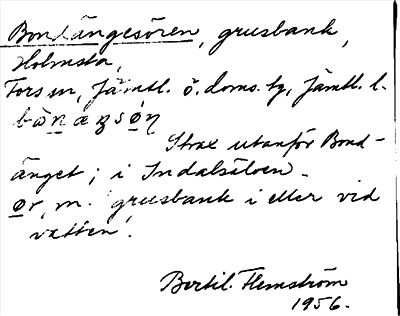 Bondängesören, grusbank,
Holmsta,
Fors sn, Jämtl. ö. doms. tg, Jämtl. l.
Strax utanför Bond-
änget; i Indalsälven.
ør, m. grusbank i eller vid
vatten.
Bertil Flemström
1956.